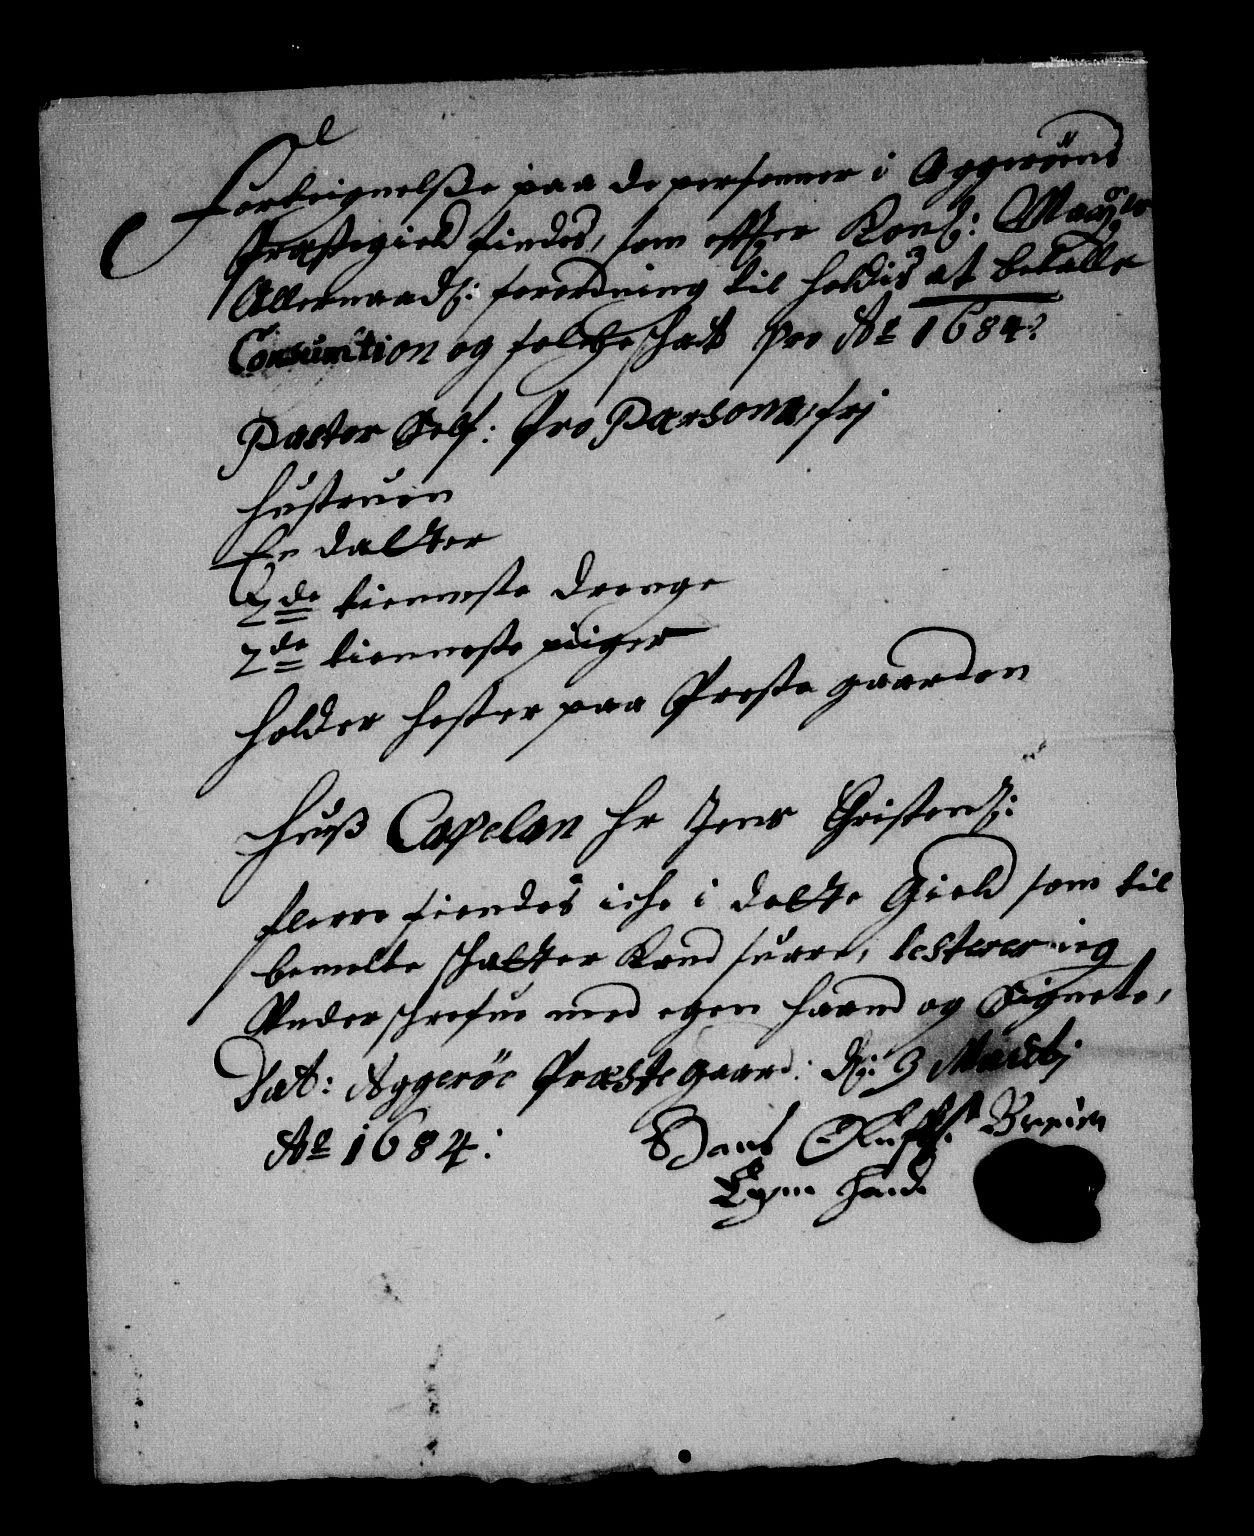 Forteignelsße paa de personner i Aggerøens
Præstegield findes, som effter Kongl: Maÿtz
Allernaadst: forordning til holdis at betalle
Consumtion og folcheschat Pro Aº 1684:
Pastor Self: Pro Persona, frj
Hustruen
En datter
2de tienneste drenge
2de tienneste piiger
Holder hester paa Preste gaarden
Huuß Capelan Hr Jens Christens:
flerre fiendes iche i dette Gield som til
bemelte schatter kand suare, testerer ieg
Vnderschrefue med egen haand og Signete,
Dat: Aggerøe Præstegaard: d: 3 Martj
Aº 1684:
Hans Oluffs:
Egen Haand